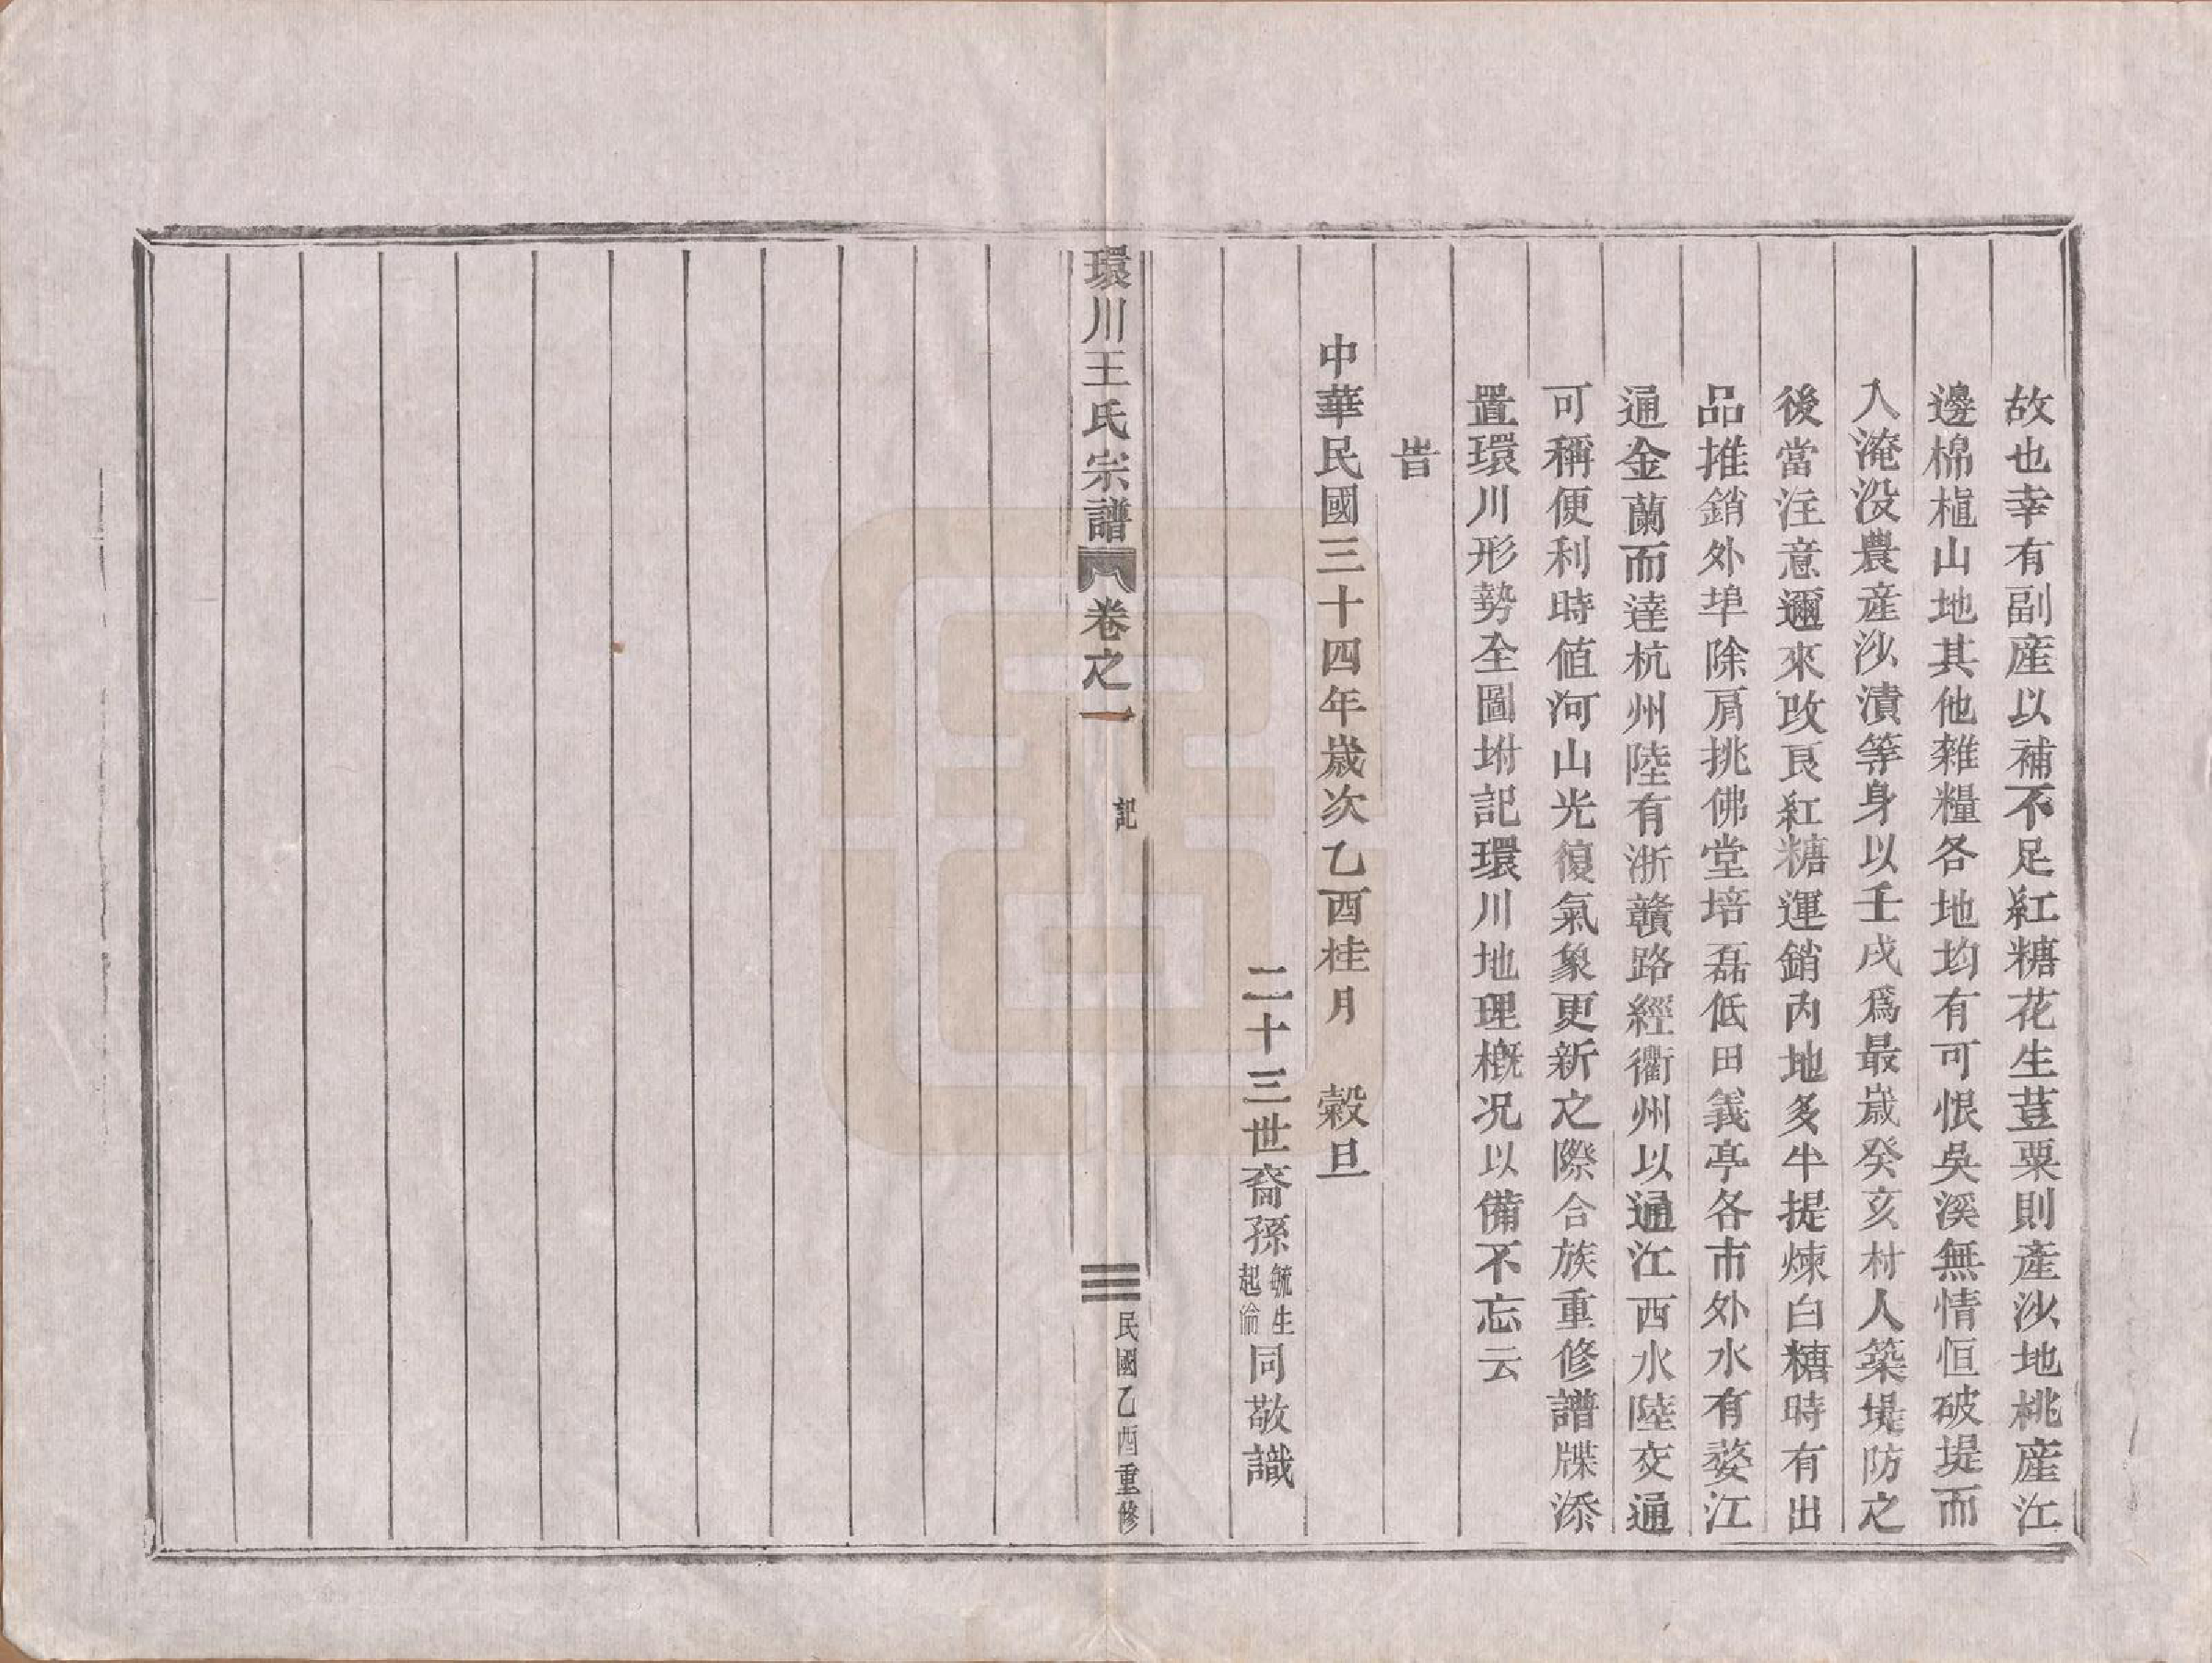 故也幸有副産以補不足紅糖花生荳粟則產沙地桃産江
邊棉樝山地其他雜糧各地均有可恨吳溪無情恒破堤而
入淹没農産沙漬等身以壬戌爲最歲癸亥村人築堤防之
後當注意邇來改良紅糖運銷內地多半提煉白糖時有出
品推銷外埠除肩挑佛堂培磊低田義亭各市外水有婺江
通金蘭而達杭州陸有浙贛路經衢州以通江西水陸交通
可稱便利時值河山光復氣象更新之際合族重修譜牒添
置環川形勢全圖坿記環川地理槪况以備不忘云
旹
中華民國三十四年歲次乙酉桂月 穀旦
二十三世裔孫毓生起倫同敬識
環川王氏宗譜 卷之一 記 三 民國乙酉重修